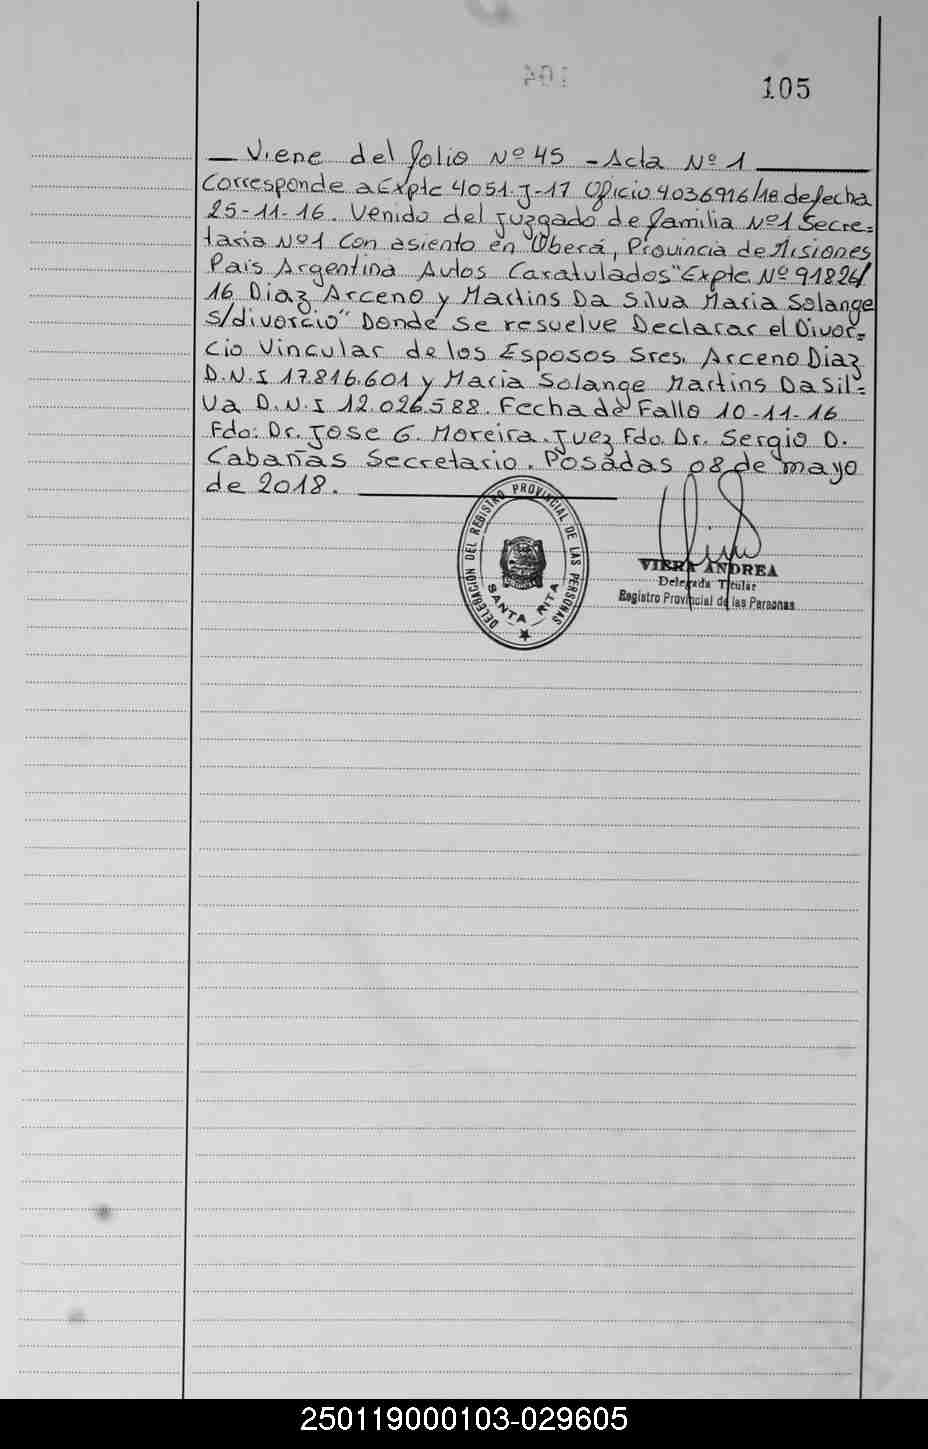 105
— Viene del folio Nº 45 - Acta Nº 1
Corresponde a Expte 4051. J-17 Oficio 4036916/18 de fecha
25-11-16. Venido del Juzgado de familia Nº1 Secre=
taria Nº1 Con asiento en Oberá, Provincia de Misiones
Pais Argentina Autos Caratulados "Expte. Nº 91826/
16 Diaz Arceno y Martins Da Silva Maria Solange
S/divorcio" Donde se resuelve Declarar el Divor=
cio Vincular de los Esposos Sres. Arceno Diaz
D.N.I 17.816.601 y Maria Solange Martins Da Sil=
va D.N.I 12.026.588. Fecha de Fallo 10-11-16
Fdo: Dr. Jose G. Moreira. Juez Fdo. Dr. Sergio D.
Cabañas Secretario. Posadas 08 de mayo
de 2018.
DELEGACIÓN DEL REGISTRO PROVINCIAL DE LAS PERSONAS
SANTA RITA
VIERA ANDREA
Delegada Titular
Registro Provincial de las Personas
250119000103-029605